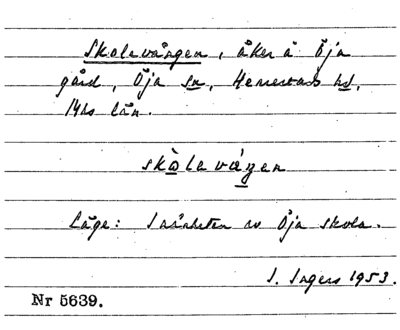 Skolevången, åker å Öja
gård, Öja sn, Herrestads hd,
Mhs län.
skòleváŋen
Läge: I närheten av Öja skola.
I. Ingers 1953.
Nr 5639.